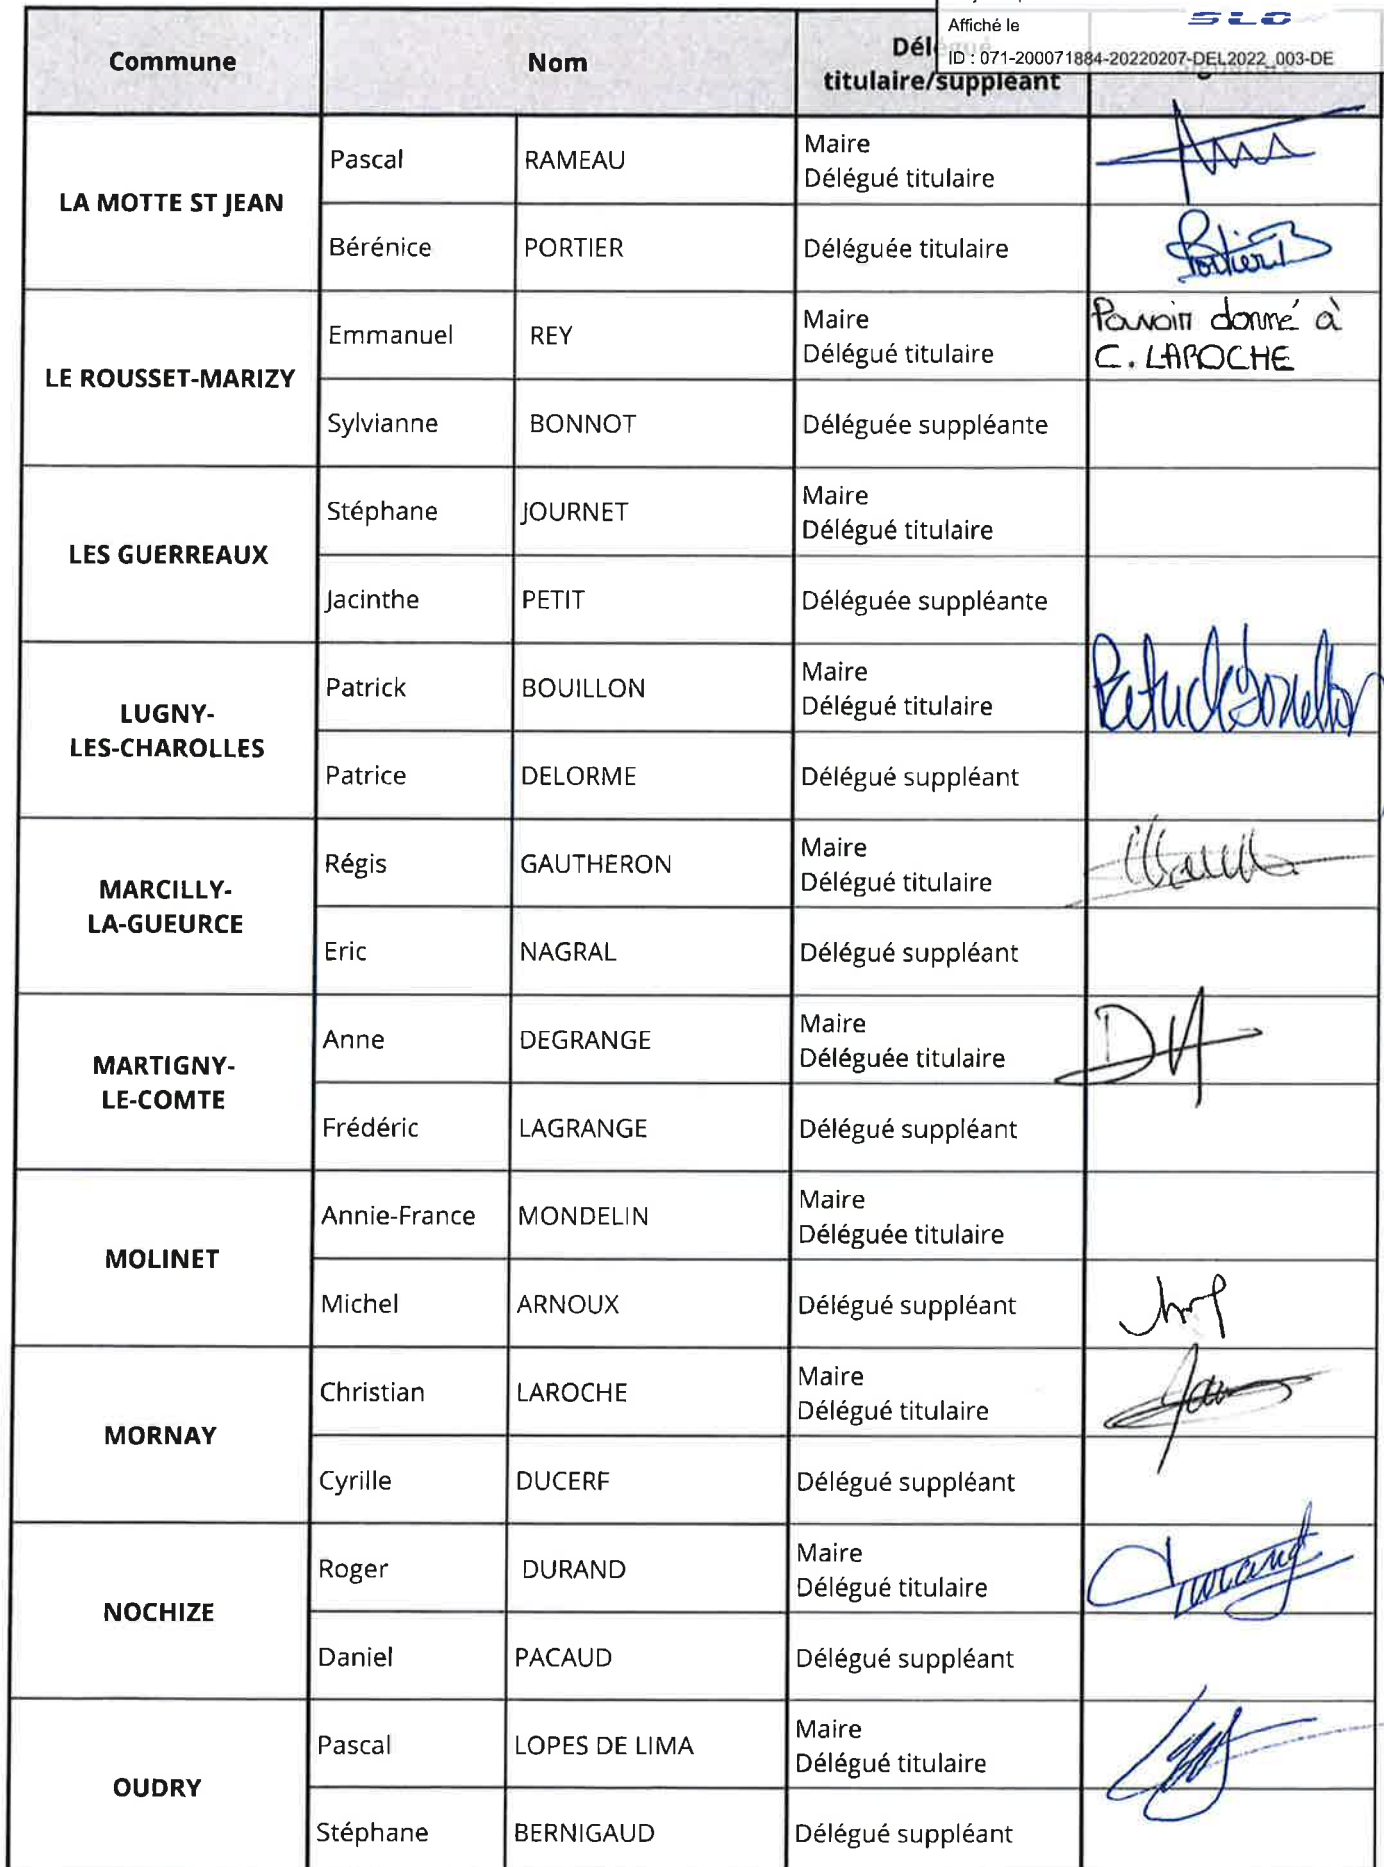 Affiché le
SLO
ID : 071-200071884-20220207-DEL2022_003-DE
Commune Nom Délégué
titulaire/suppléant Signature
LA MOTTE ST JEAN
Pascal RAMEAU Maire
Délégué titulaire
Bérénice PORTIER Déléguée titulaire Portier B
LE ROUSSET-MARIZY
Emmanuel REY Maire
Délégué titulaire
Pouvoir donné à
C. LAROCHE
Sylvianne BONNOT Déléguée suppléante
LES GUERREAUX
Stéphane JOURNET Maire
Délégué titulaire
Jacinthe PETIT Déléguée suppléante
LUGNY-
LES-CHAROLLES
Patrick BOUILLON Maire
Délégué titulaire
Patrice DELORME Délégué suppléant
MARCILLY-
LA-GUEURCE
Régis GAUTHERON Maire
Délégué titulaire
Eric NAGRAL Délégué suppléant
MARTIGNY-
LE-COMTE
Anne DEGRANGE Maire
Déléguée titulaire
Frédéric LAGRANGE Délégué suppléant
MOLINET
Annie-France MONDELIN Maire
Déléguée titulaire
Michel ARNOUX Délégué suppléant
MORNAY
Christian LAROCHE Maire
Délégué titulaire
Cyrille DUCERF Délégué suppléant
NOCHIZE
Roger DURAND Maire
Délégué titulaire
Durand
Daniel PACAUD Délégué suppléant
OUDRY
Pascal LOPES DE LIMA Maire
Délégué titulaire
Stéphane BERNIGAUD Délégué suppléant